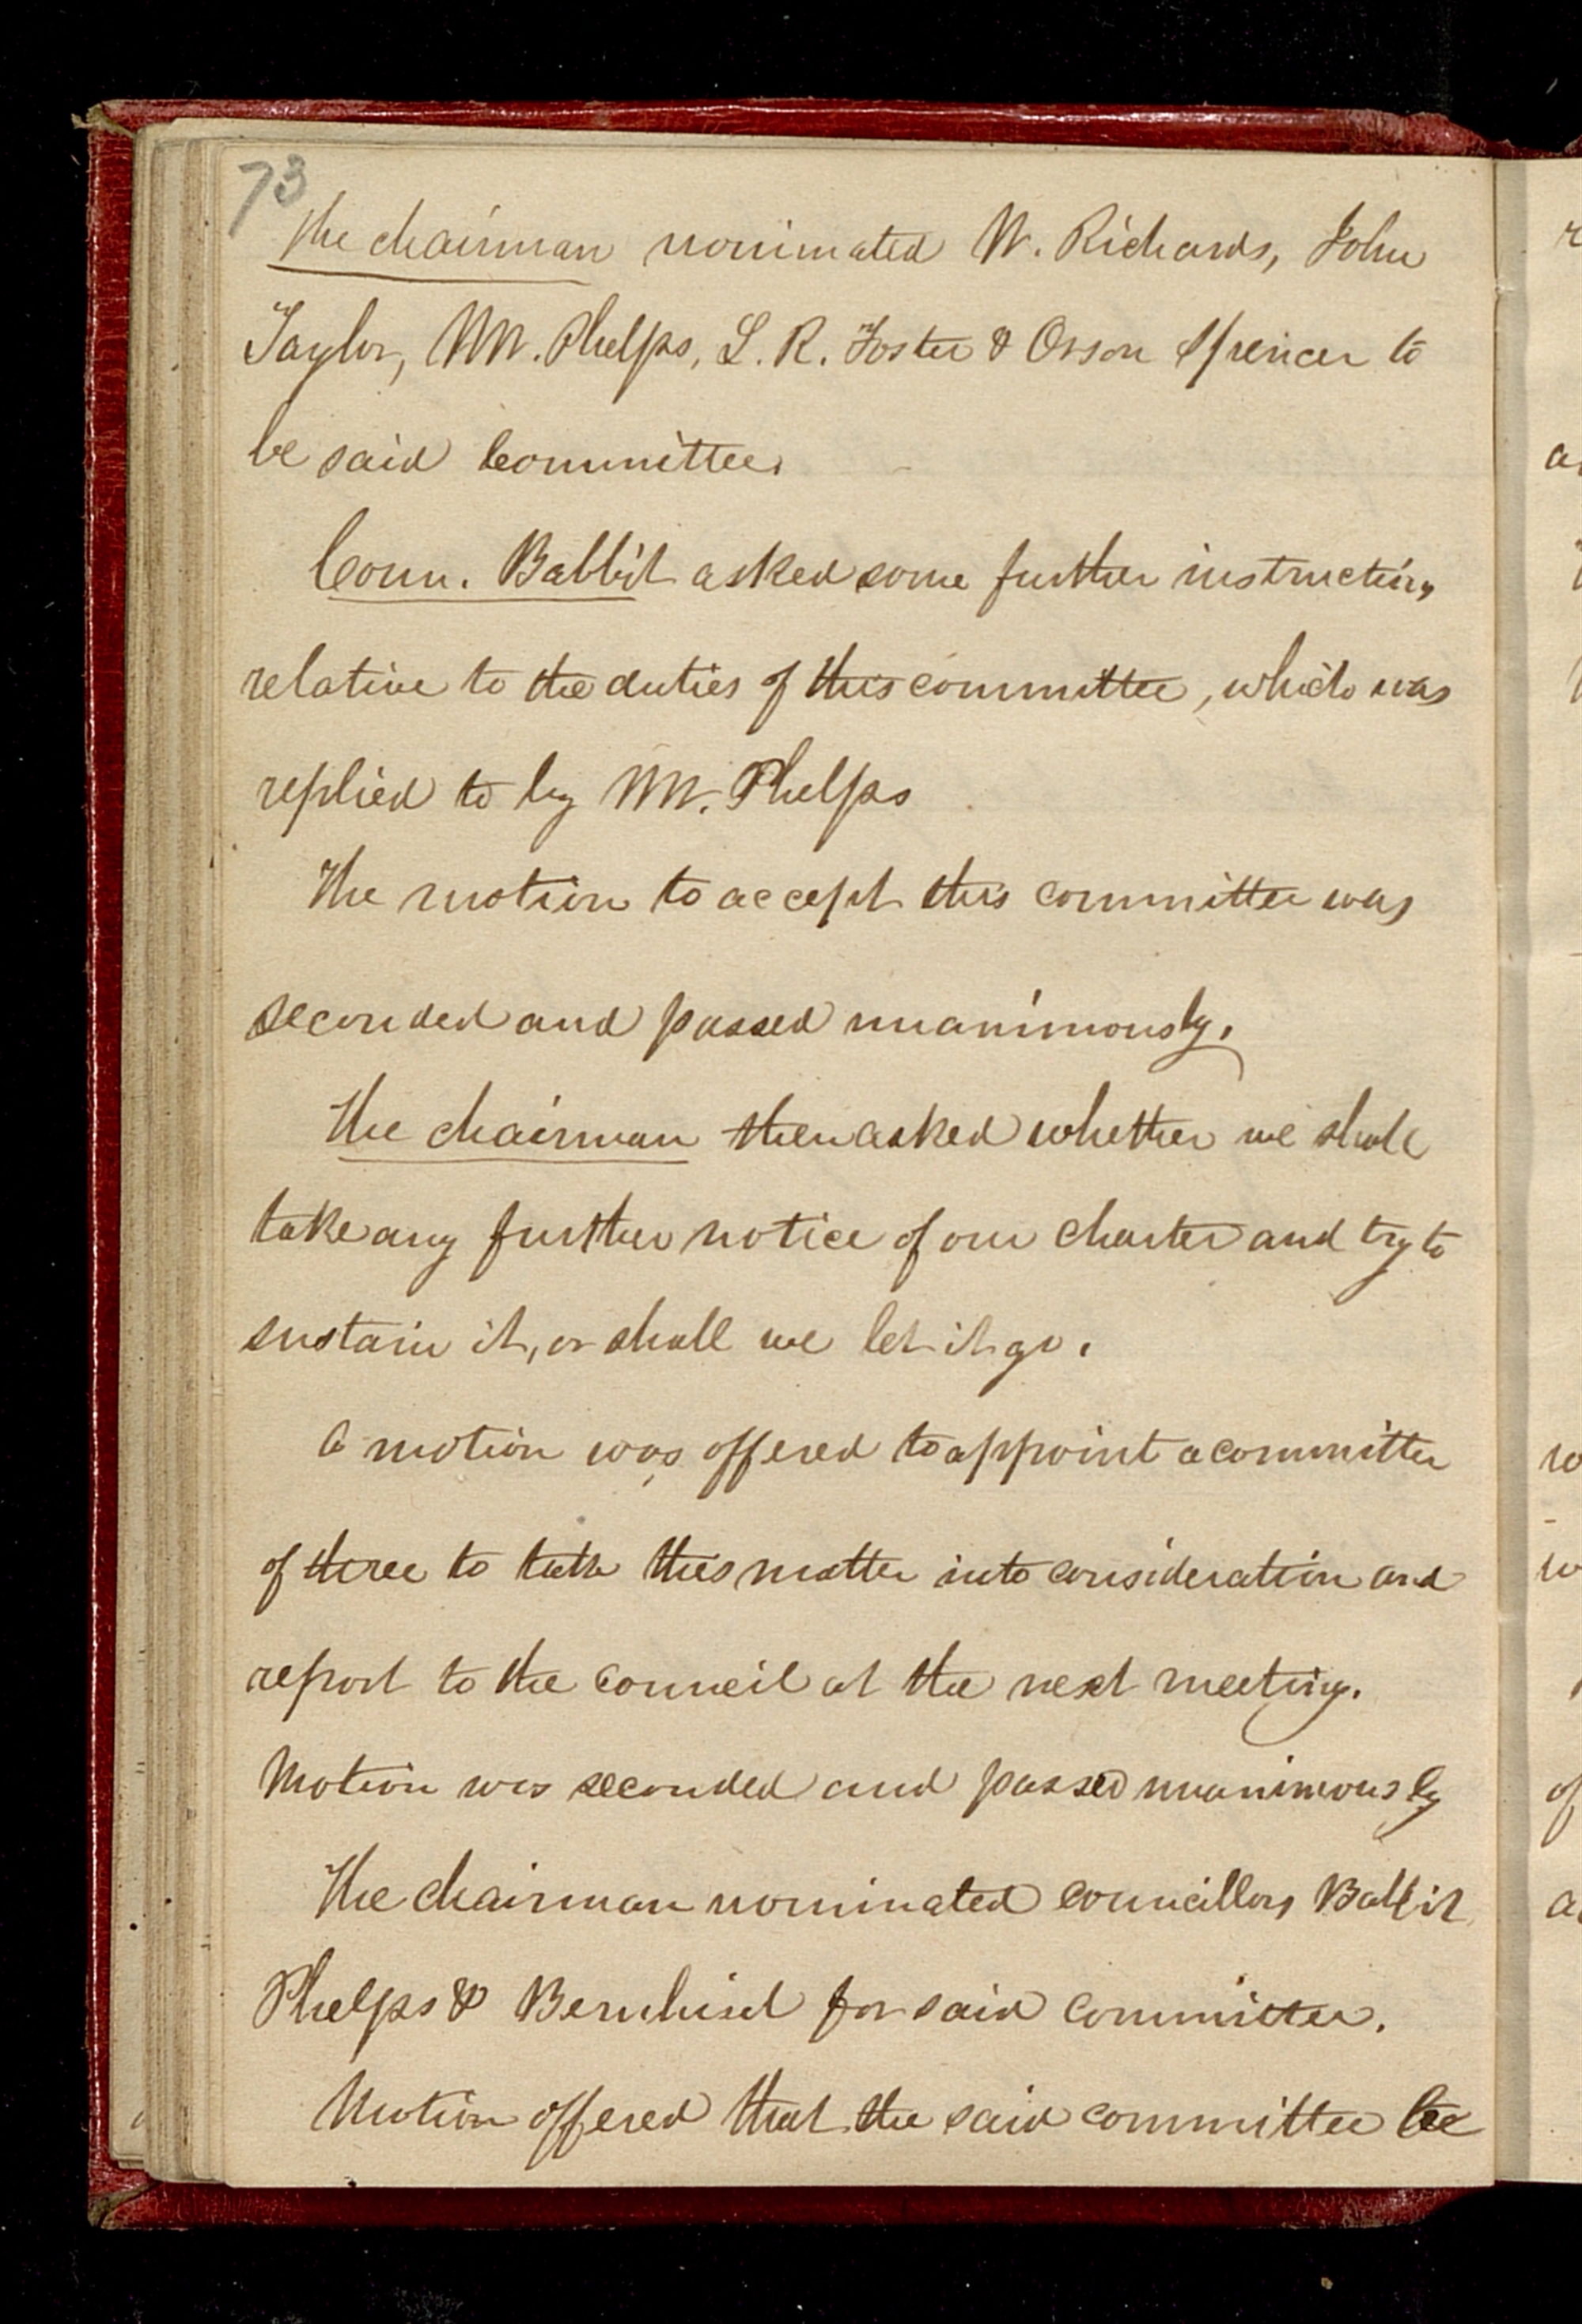 73
The chairman nominated W. Richards, John
Taylor, WW. Phelps, L. R. Foster & Orson Spencer to
be said Committee.
Coun. Babbit asked some further instructions
relative to the duties of this committee, which was
replied to by WW. Phelps
The motion to accept this committee was
seconded and passed unanimously.
The chairman then asked whether we shall
take any further notice of our charter and try to
sustain it, or shall we let it go.
A motion was offered to appoint a committee
of three to take this matter into consideration and
report to the council at the next meeting.
Motion was seconded and passed unanimously
The chairman nominated councillors Babbit
Phelps & Bernhisel for said committee.
Motion offered that the said committee be